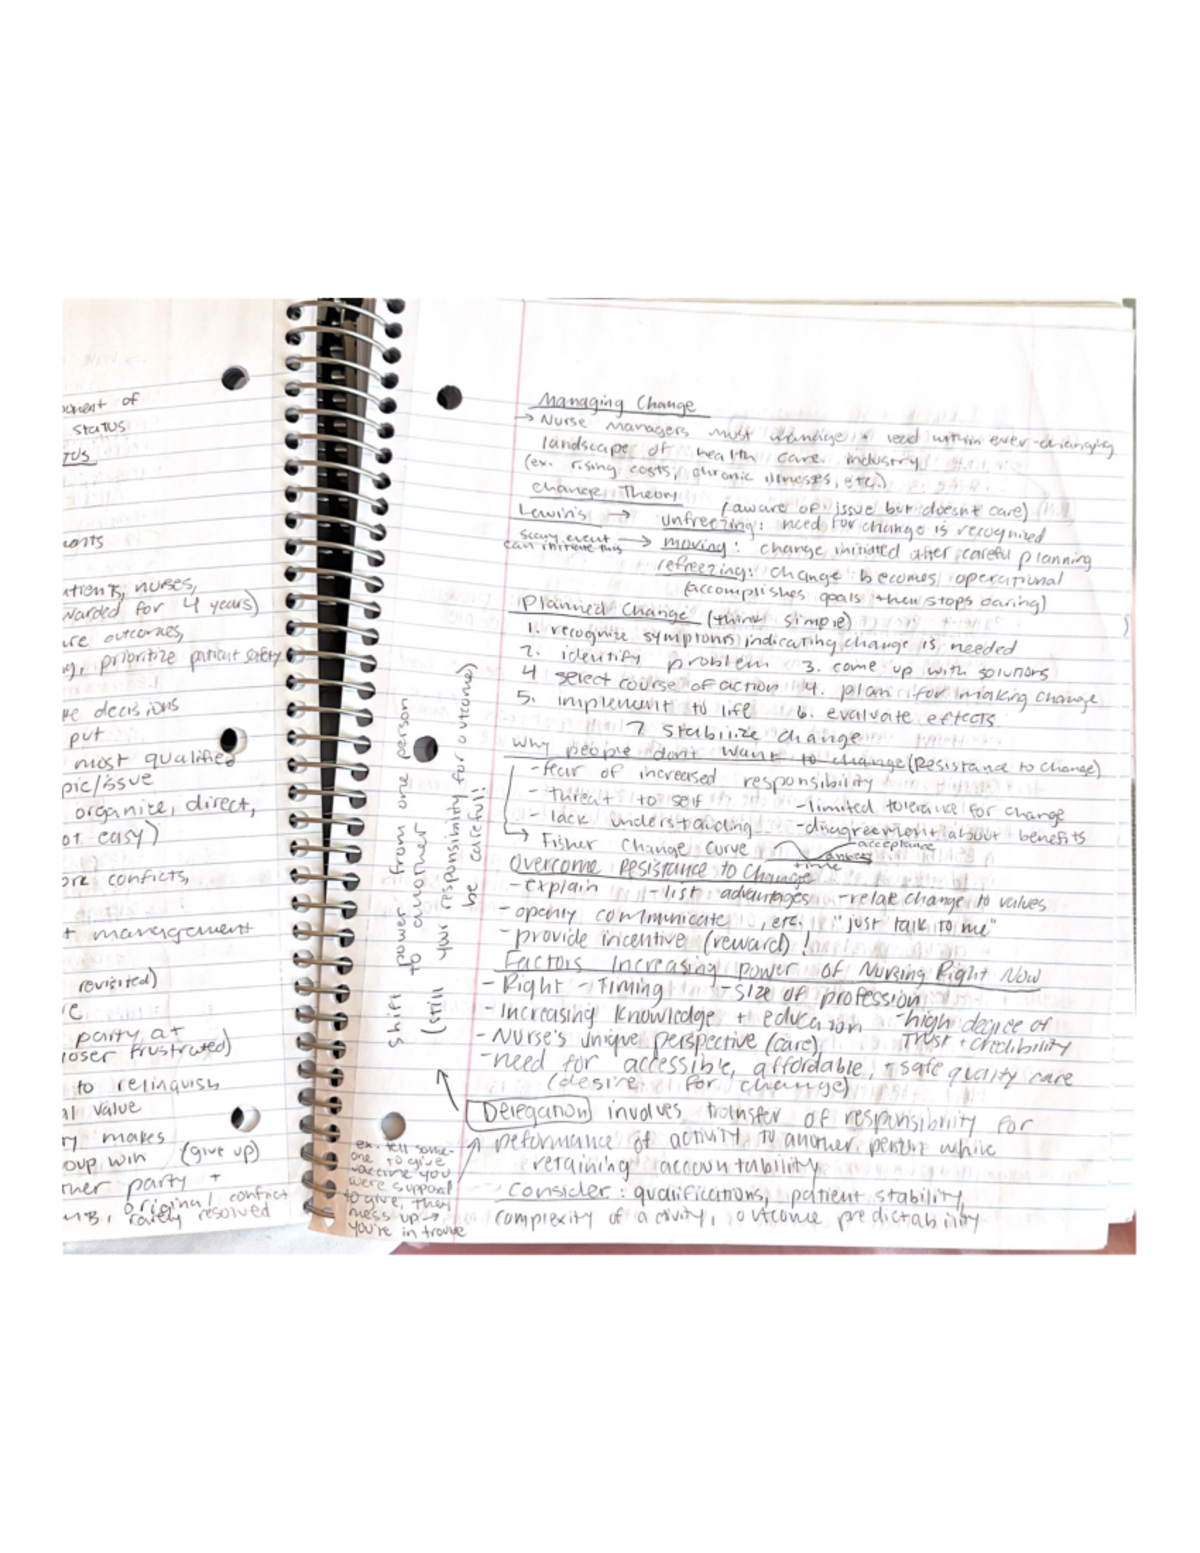 ponent of
status
TUS
nurses,
warded for 4 years)
are outcomes,
prioritize patient safety
decisions
put
most qualified
pic/issue
organize, direct,
ot easy)
ore conficts,
+ management
revisited)
party at
loser frustrated)
to relinquish
al value
makes
oup win (give up)
ther party +
original conflict
rarely resolved
shift power from one person
to another
(still your responsibility for outcome)
be careful!
ex. tell some-
one to give
vaccine you
were suppose
to give, they
mess up →
you're in trouble
Managing Change
→ Nurse managers must manage + lead within ever-changing
landscape of health care industry
(ex. rising costs, chronic illnesses, etc.)
Change Theory (aware of issue but doesn't care)
Lewin's → unfreezing: need for change is recognized
scary event can initiate this → moving: change initiated after careful planning
refreezing: change becomes operational
(accomplishes goals then stops caring)
Planned Change (think simple)
1. recognize symptoms indicating change is needed
2. identify problem 3. come up with solutions
4 select course of action 4. plan for making change
5. implement to life 6. evaluate effects
7. stabilize change
Why people don't want to change (Resistance to Change)
- fear of increased responsibility
- threat to self - limited tolerance for change
- lack understanding - disagreement about benefits
→ Fisher Change Curve acceptance
time
Overcome Resistance to Change
- Explain - list advantages - relate change to values
- openly communicate, etc. "just talk to me"
- provide incentive (reward)!
Factors Increasing power of Nursing Right Now
- Right - Timing - size of profession
- Increasing knowledge + education - high degree of
Trust + credibility
- Nurse's unique perspective (care)
- need for accessible, affordable, + safe quality care
(desire for change)
Delegation involves transfer of responsibility for
peformance of activity to another person while
retaining accountability
- Consider: qualifications, patient stability,
complexity of activity, outcome predictability